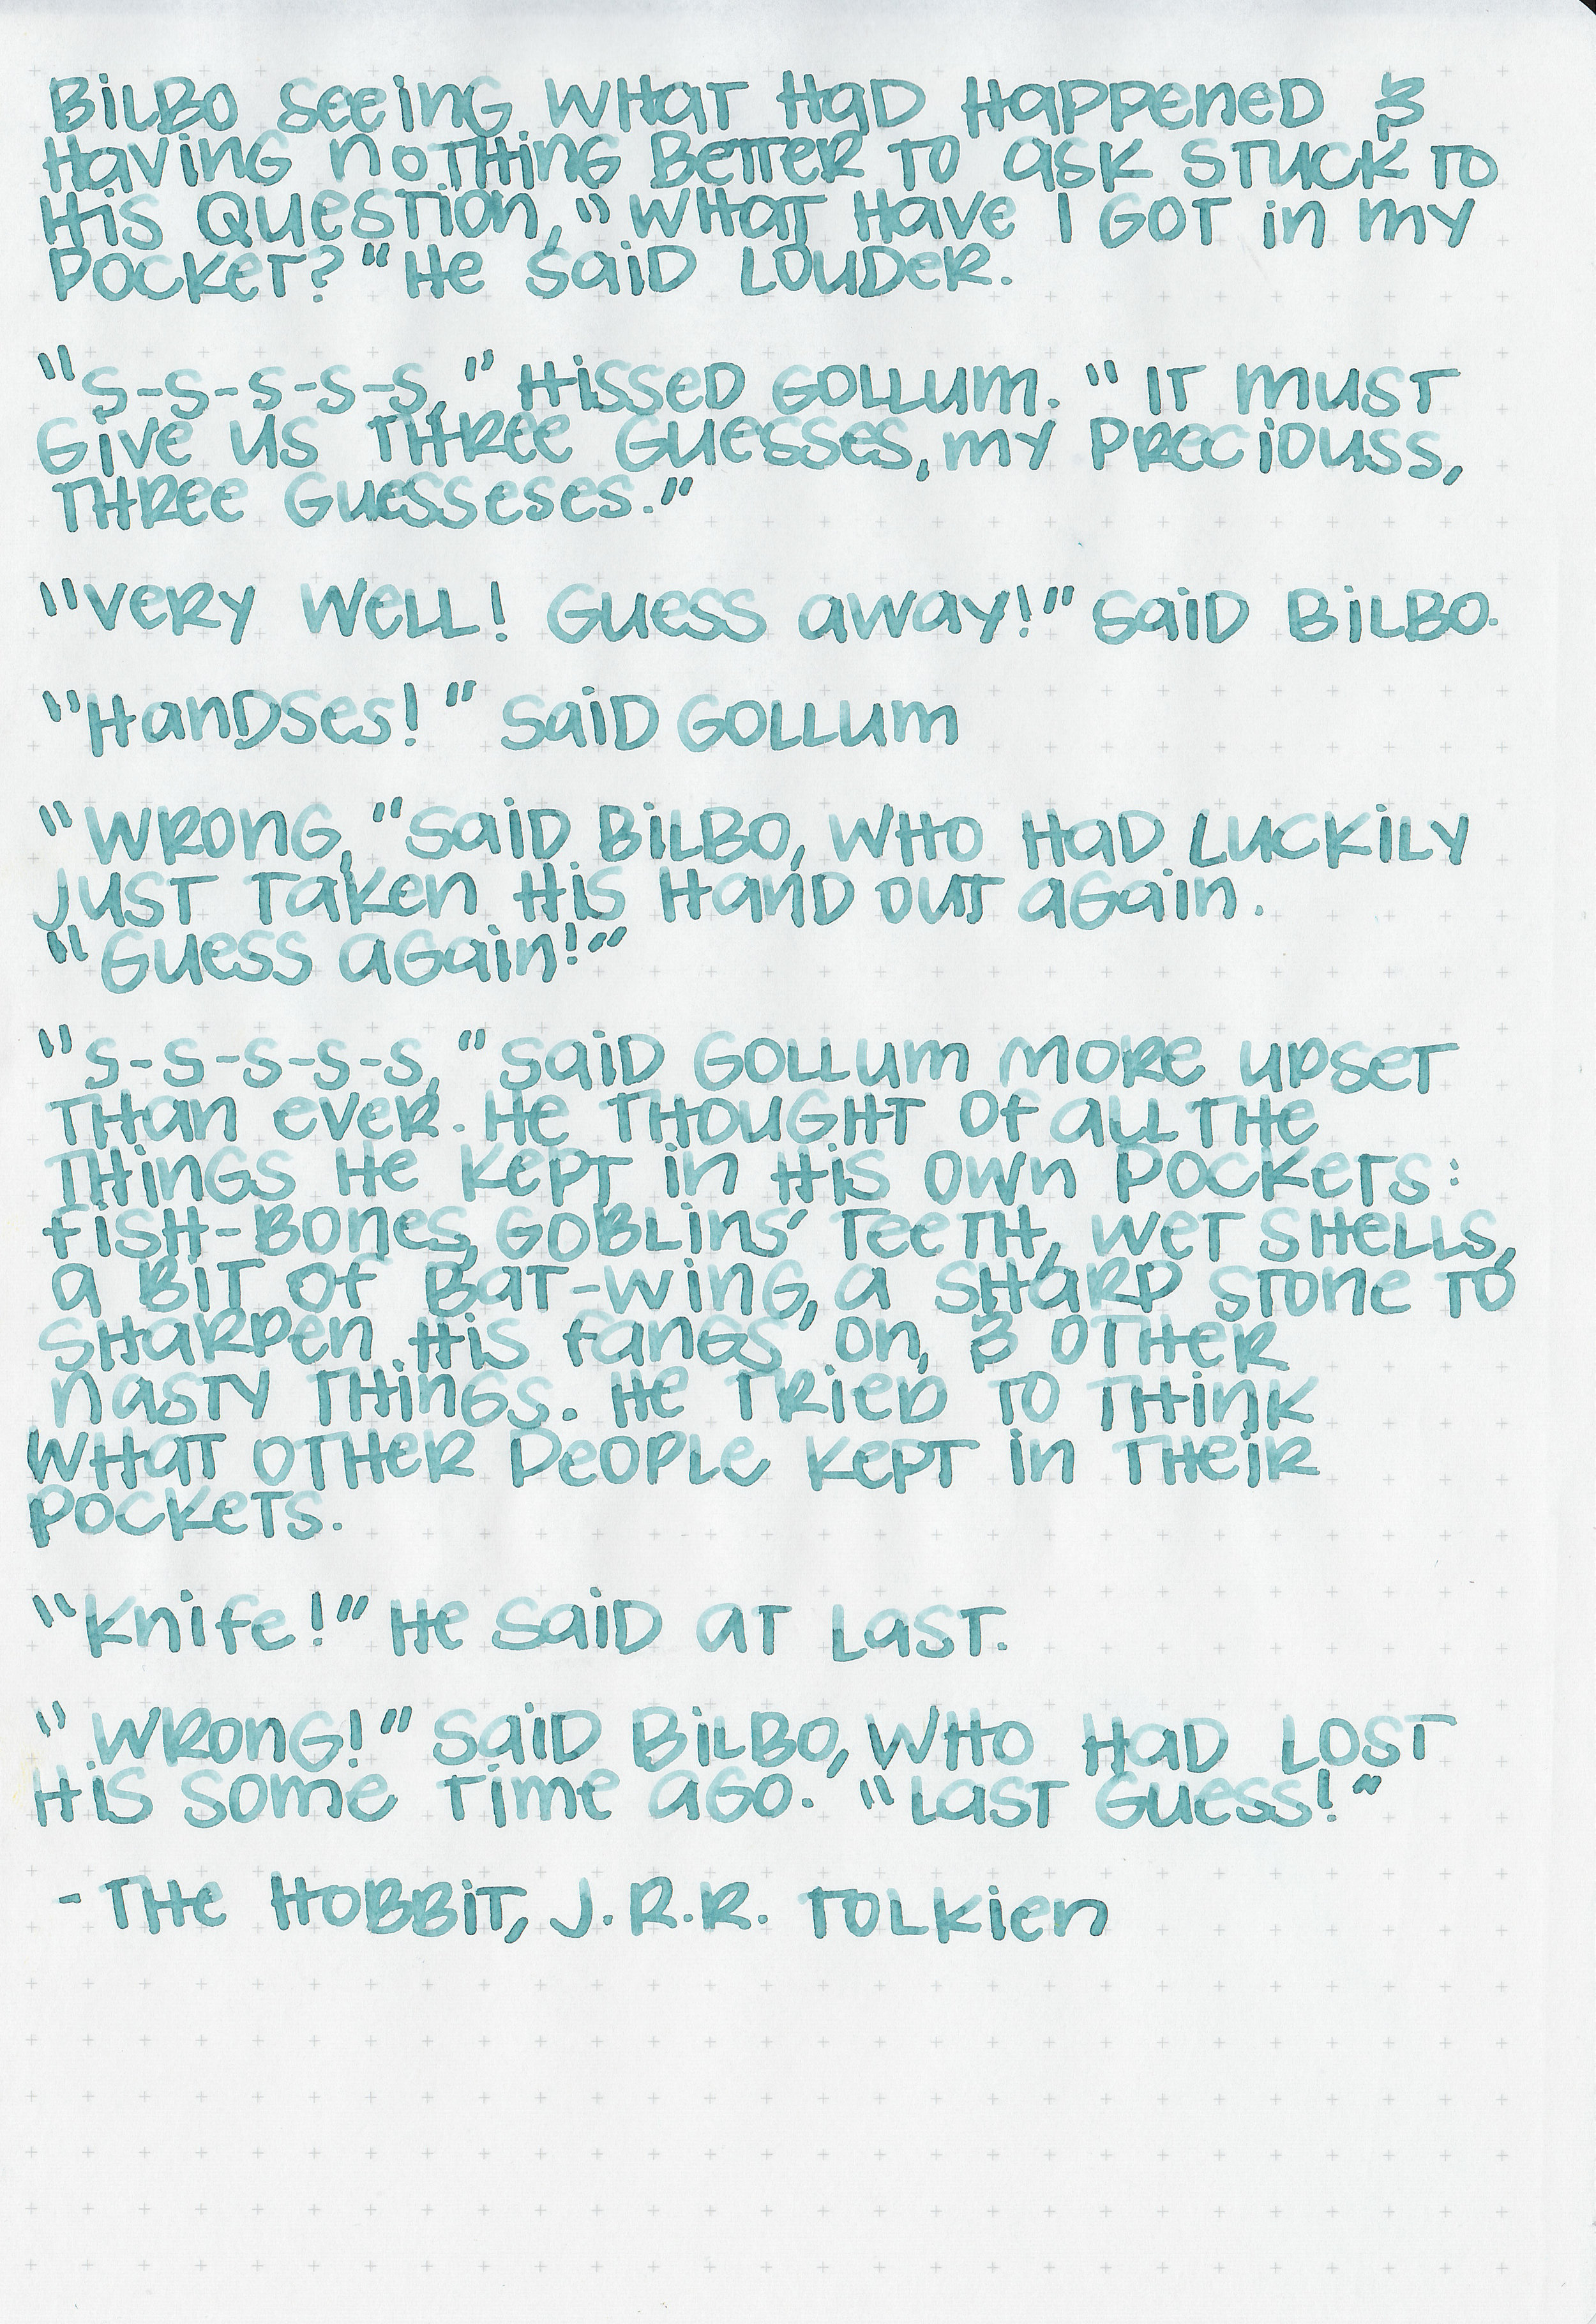 Bilbo seeing what had happened &
having nothing better to ask stuck to
his question, "What have I got in my
pocket?" he said louder.
"S-s-s-s-s," hissed Gollum. "It must
give us three guesses, my preciouss,
three guesseses."
"Very well! Guess away!" said Bilbo.
"Handses!" said Gollum
"Wrong," said Bilbo, who had luckily
just taken his hand out again.
"Guess again!"
"S-s-s-s-s," said Gollum more upset
than ever. He thought of all the
things he kept in his own pockets:
fish-bones, goblins' teeth, wet shells,
a bit of bat-wing, a sharp stone to
sharpen his fangs on, & other
nasty things. He tried to think
what other people kept in their
pockets.
"Knife!" he said at last.
"Wrong!" said Bilbo, who had lost
his some time ago. "Last guess!"
- The Hobbit, J.R.R. Tolkien